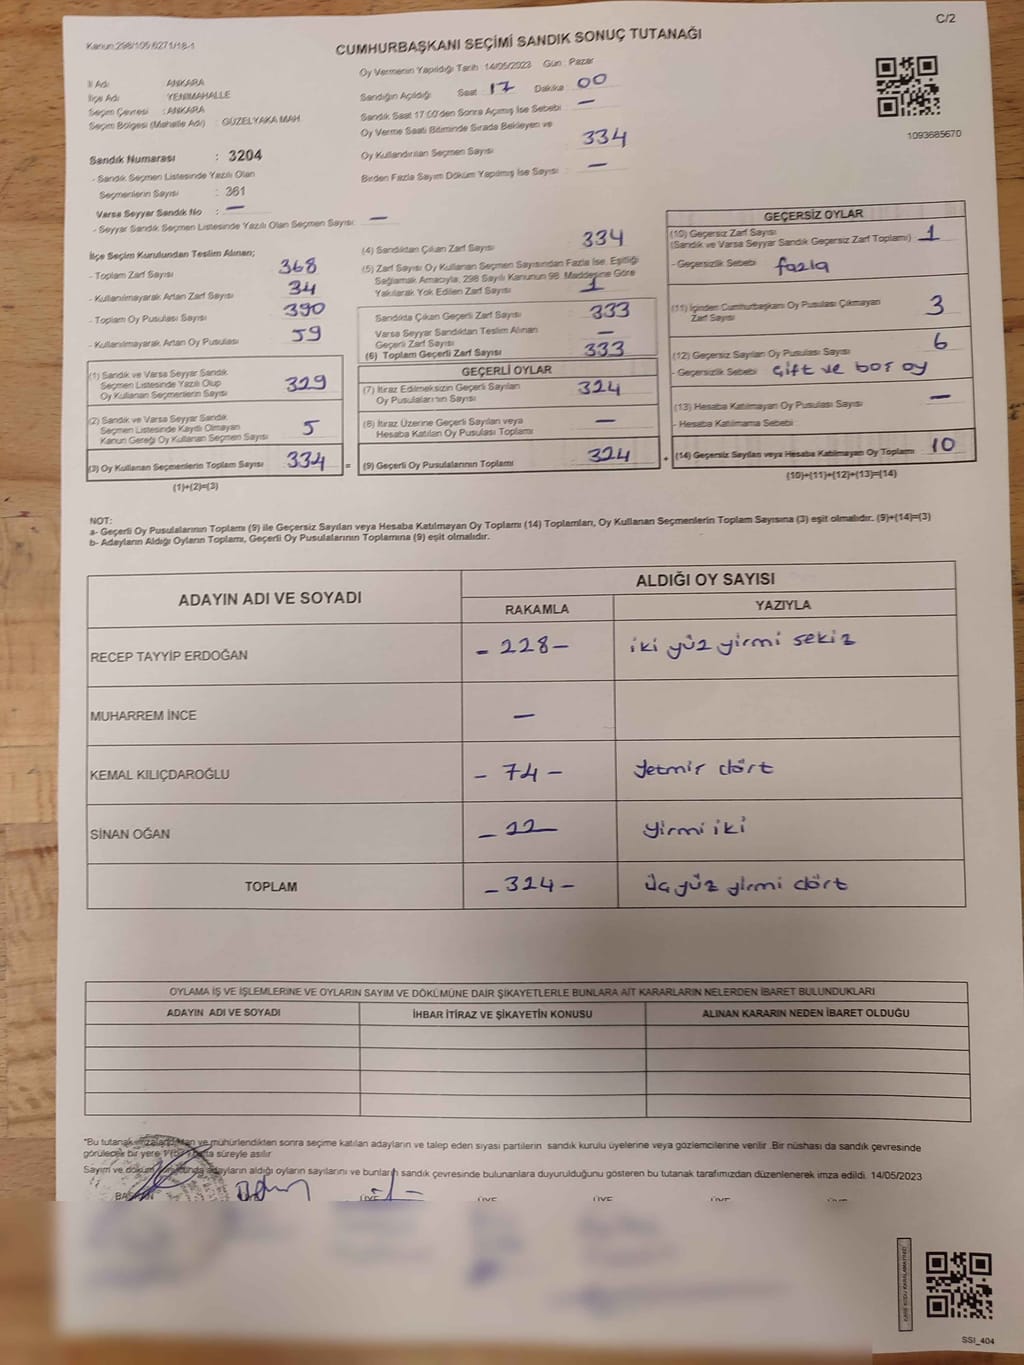 C/2
Kanun:298/105 6271/18-1
CUMHURBAŞKANI SEÇİMİ SANDIK SONUÇ TUTANAĞI
İl Adı : ANKARA
İlçe Adı : YENİMAHALLE
Seçim Çevresi : ANKARA
Seçim Bölgesi (Mahalle Adı) : GÜZELYAKA MAH.
Sandık Numarası : 3204
- Sandık Seçmen Listesinde Yazılı Olan
Seçmenlerin Sayısı : 361
Varsa Seyyar Sandık No : —
- Seyyar Sandık Seçmen Listesinde Yazılı Olan Seçmen Sayısı: —
Oy Vermenin Yapıldığı Tarih :14/05/2023 Gün : Pazar
Sandığın Açıldığı Saat 17 Dakika 00
Sandık Saat 17:00'den Sonra Açılmış İse Sebebi —
Oy Verme Saati Bitiminde Sırada Bekleyen ve
Oy Kullandırılan Seçmen Sayısı 334
Birden Fazla Sayım Döküm Yapılmış İse Sayısı : —
1093685670
İlçe Seçim Kurulundan Teslim Alınan;
- Toplam Zarf Sayısı 368
- Kullanılmayarak Artan Zarf Sayısı 34
- Toplam Oy Pusulası Sayısı 390
- Kullanılmayarak Artan Oy Pusulası 59
(1) Sandık ve Varsa Seyyar Sandık
Seçmen Listesinde Yazılı Olup
Oy Kullanan Seçmenlerin Sayısı 329
(2) Sandık ve Varsa Seyyar Sandık
Seçmen Listesinde Kayıtlı Olmayan
Kanun Gereği Oy Kullanan Seçmen Sayısı 5
(3) Oy Kullanan Seçmenlerin Toplam Sayısı 334 =
(1)+(2)=(3)
(4) Sandıktan Çıkan Zarf Sayısı 334
(5) Zarf Sayısı Oy Kullanan Seçmen Sayısından Fazla İse, Eşitliği
Sağlamak Amacıyla, 298 Sayılı Kanunun 98. Maddesine Göre
Yakılarak Yok Edilen Zarf Sayısı 1
Sandıkta Çıkan Geçerli Zarf Sayısı 333
Varsa Seyyar Sandıktan Teslim Alınan
Geçerli Zarf Sayısı —
(6) Toplam Geçerli Zarf Sayısı 333
GEÇERLİ OYLAR
(7) İtiraz Edilmeksizin Geçerli Sayılan
Oy Pusulalarının Sayısı 324
(8) İtiraz Üzerine Geçerli Sayılan veya
Hesaba Katılan Oy Pusulası Toplamı —
(9) Geçerli Oy Pusulalarının Toplamı 324 +
GEÇERSİZ OYLAR
(10) Geçersiz Zarf Sayısı
(Sandık ve Varsa Seyyar Sandık Geçersiz Zarf Toplamı) 1
- Geçersizlik Sebebi fazla
(11) İçinden Cumhurbaşkanı Oy Pusulası Çıkmayan
Zarf Sayısı 3
(12) Geçersiz Sayılan Oy Pusulası Sayısı 6
- Geçersizlik Sebebi Çift ve boş oy
(13) Hesaba Katılmayan Oy Pusulası Sayısı —
- Hesaba Katılmama Sebebi
(14) Geçersiz Sayılan veya Hesaba Katılmayan Oy Toplamı 10
(10)+(11)+(12)+(13)=(14)
NOT:
a- Geçerli Oy Pusulalarının Toplamı (9) ile Geçersiz Sayılan veya Hesaba Katılmayan Oy Toplamı (14) Toplamları, Oy Kullanan Seçmenlerin Toplam Sayısına (3) eşit olmalıdır. (9)+(14)=(3)
b- Adayların Aldığı Oyların Toplamı, Geçerli Oy Pusulalarının Toplamına (9) eşit olmalıdır.
ADAYIN ADI VE SOYADI ALDIĞI OY SAYISI
RAKAMLA YAZIYLA
RECEP TAYYİP ERDOĞAN - 228 - iki yüz yirmi sekiz
MUHARREM İNCE —
KEMAL KILIÇDAROĞLU - 74 - Yetmiş dört
SİNAN OĞAN - 22 - Yirmi iki
TOPLAM - 324 - Üç yüz yirmi dört
OYLAMA İŞ VE İŞLEMLERİNE VE OYLARIN SAYIM VE DÖKÜMÜNE DAİR ŞİKAYETLERLE BUNLARA AİT KARARLARIN NELERDEN İBARET BULUNDUKLARI
ADAYIN ADI VE SOYADI İHBAR İTİRAZ VE ŞİKAYETİN KONUSU ALINAN KARARIN NEDEN İBARET OLDUĞU
"Bu tutanak imzalandıktan ve mühürlendikten sonra seçime katılan adayların ve talep eden siyasi partilerin sandık kurulu üyelerine veya gözlemcilerine verilir. Bir nüshası da sandık çevresinde
görülecek bir yere süreyle asılır
Sayım ve döküm sonucunda adayların aldığı oyların sayılarını ve bunların sandık çevresinde bulunanlara duyurulduğunu gösteren bu tutanak tarafımızdan düzenlenerek imza edildi. 14/05/2023
BAŞKAN ÜYE ÜYE ÜYE ÜYE ÜYE
SSI_404